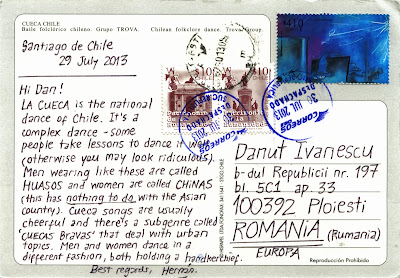 CUECA CHILE
Baile folclórico chileno. Grupo TROVA. Chilean folkclore dance. Trova Group.
Santiago de Chile
29 July 2013
Hi Dan!
LA CUECA is the national
dance of Chile. It's a
complex dance - some
people take lessons to dance it well
(otherwise you may look ridiculous).
Men wearing like these are called
HUASOS and women are called CHINAS
(this has nothing to do with the Asian
country). Cueca songs are usually
cheerful and there's a subgenre called
"CUECAS BRAVAS" that deal with urban
topics. Men and women dance in a
different fashion, both holding a handkerchief.
Best regards, Hernán.
$10
$10
$410
CORREOS
DESPACHADO
30 JUL 2013
CORREOS
DESPACHADO
30 JUL 2013
Danut Ivanescu
b-dul Republicii nr. 197
bl. 5C1 ap. 33
100392 Ploiesti
ROMANIA (Rumania)
EUROPA
Reproducción Prohibida